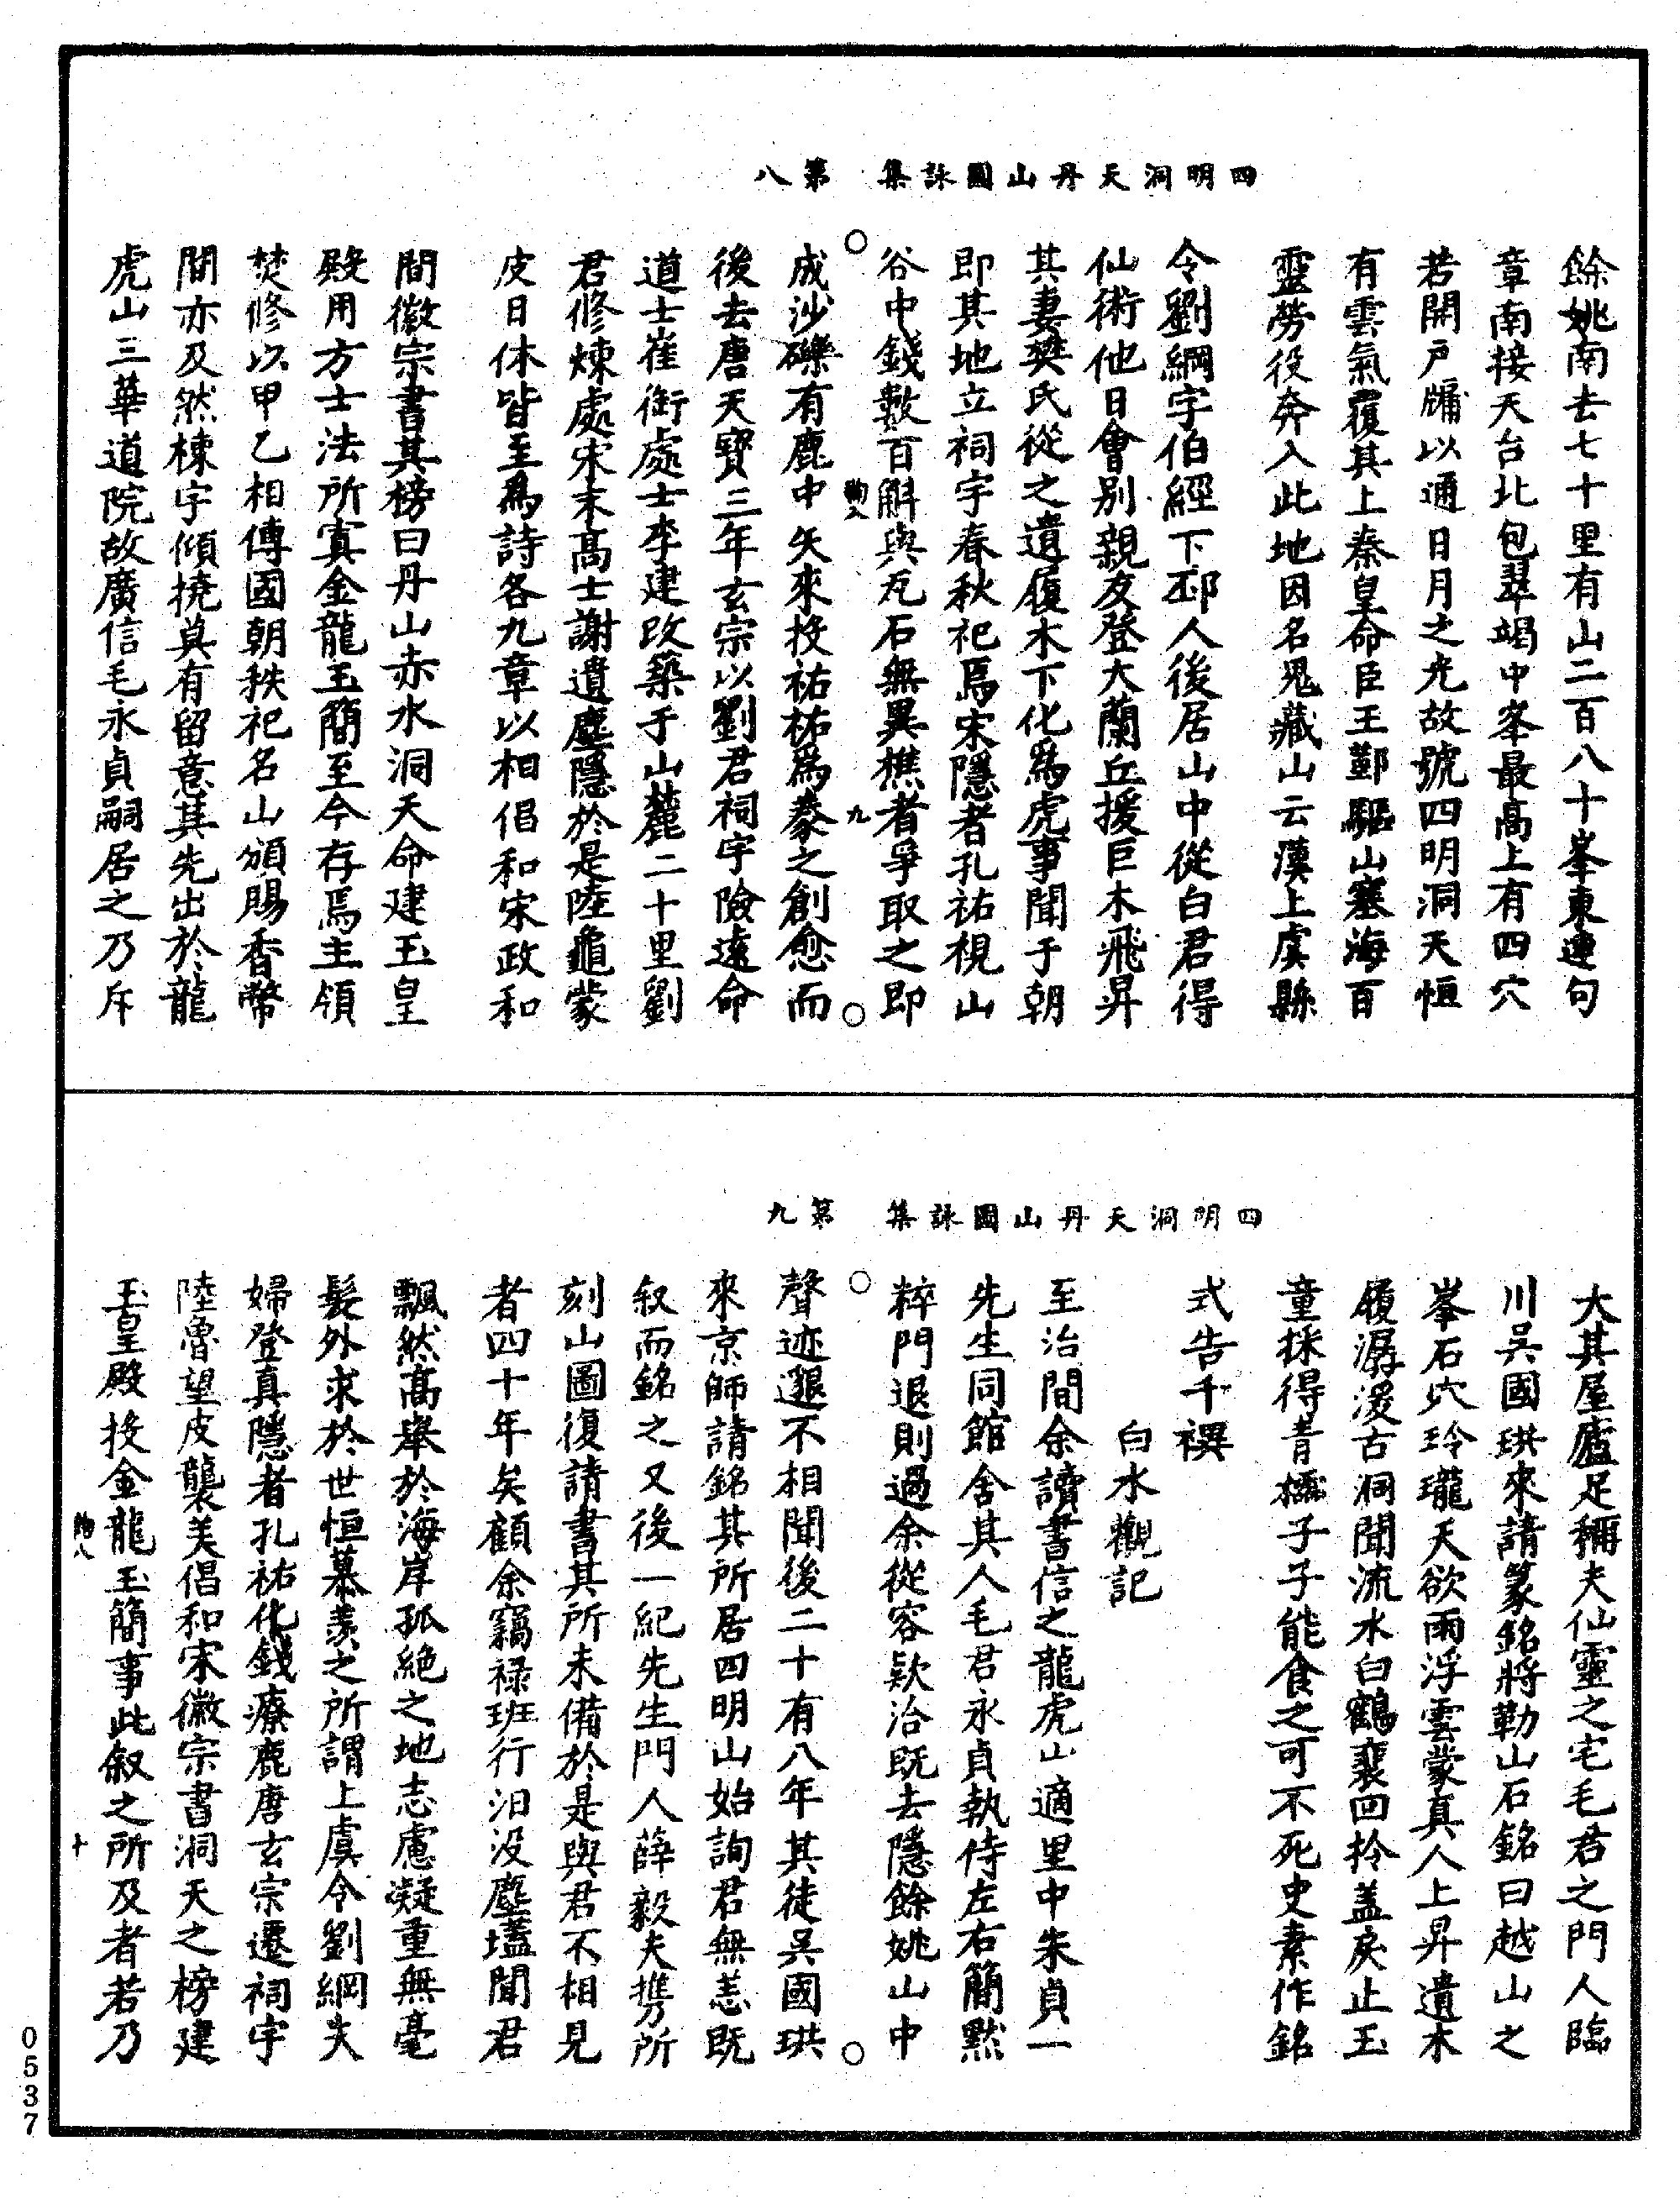 四明洞天丹山圖詠集　第八
餘姚南去七十里有山二百八十峯東連句
章南接天台北包翠竭中峯最高上有四穴
若開戶牖以通日月之光故號四明洞天恒
有雲氣覆其上秦皇命臣王鄞驅山塞海百
靈勞役奔入此地因名鬼藏山云漢上虞縣
令劉綱字伯經下邳人後居山中從白君得
仙術他日會別親友登大蘭丘援巨木飛昇
其妻樊氏從之遺履木下化爲虎事聞于朝
即其地立祠宇春秋祀焉宋隱者孔祐視山
谷中錢數百斛與瓦石無異樵者爭取之即
九
成沙礫有鹿中矢來投祐祐爲豢之創愈而
後去唐天寶三年玄宗以劉君祠宇險遠命
道士崔衘處士李建改築于山麓二十里劉
君修煉處宋末高士謝遺塵隱於是陸龜蒙
皮日休皆至爲詩各九章以相倡和宋政和
間徽宗書其榜曰丹山赤水洞天命建玉皇
殿用方士法所寘金龍玉簡至今存焉主領
焚修以甲乙相傳國朝秩祀名山頒賜香幣
間亦及然棟宇傾撓莫有留意其先出於龍
虎山三華道院故廣信毛永貞嗣居之乃斥
四明洞天丹山圖詠集　第九
大其屋廬足稱夫仙靈之宅毛君之門人臨
川吳國珙來請篆銘將勒山石銘曰越山之
峯石穴玲瓏天欲雨浮雲蒙真人上昇遺木
履潺湲古洞聞流水白鶴裴回拎蓋戾止玉
童採得青櫺子子能食之可不死史素作銘
式告千禩
白水觀記
至治間余讀書信之龍虎山適里中朱貞一
先生同館舍其人毛君永貞執侍左右簡默
粹門退則過余從容欵洽既去隱餘姚山中
聲迹邈不相聞後二十有八年其徒吳國珙
來京師請銘其所居四明山始詢君無恙既
叙而銘之又後一紀先生門人薛毅夫攜所
刻山圖復請書其所未備於是與君不相見
者四十年矣顧余竊祿班行汩沒塵壒聞君
飄然高舉於海岸孤絕之地志慮凝重無毫
髮外求於世恒慕羨之所謂上虞令劉綱夫
婦登真隱者孔祐化錢療鹿唐玄宗遷祠宇
陸魯望皮襲美倡和宋徽宗書洞天之榜建
玉皇殿投金龍玉簡事此叙之所及者若乃
十
0537